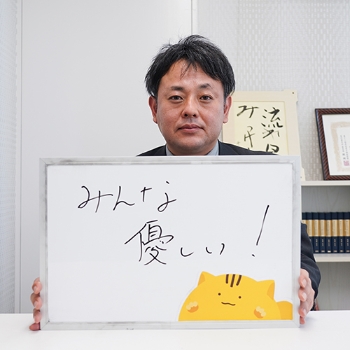 みんな
優しい！